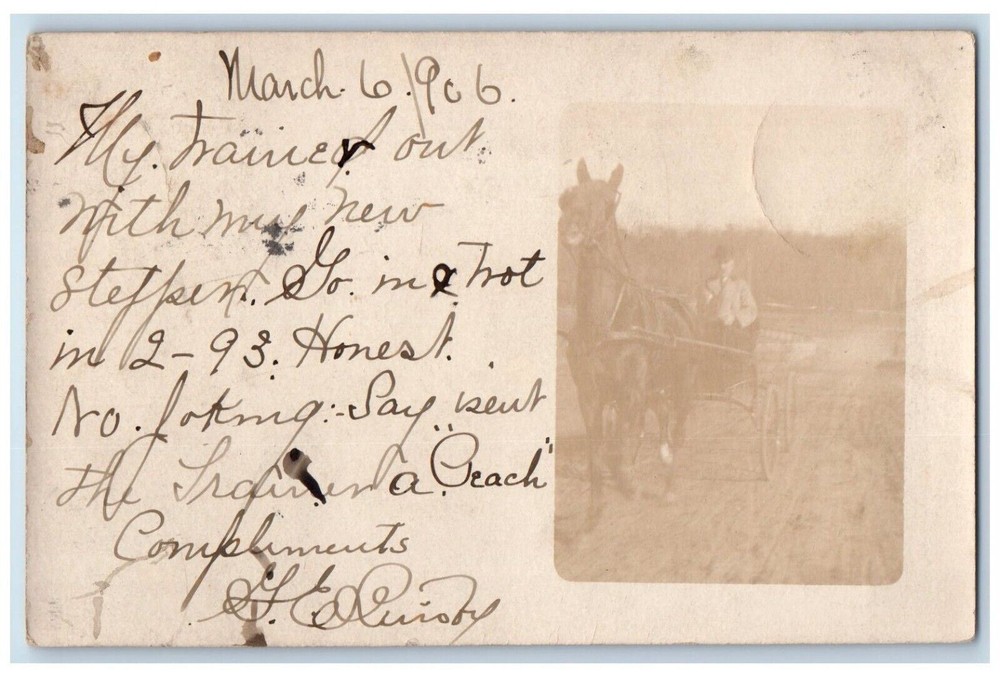 March. 6. 1906.
My. Trainer out
with my new
stepper. Go. in & Trot
in 2-93. Honest.
No. Joking:- Say isent
the Trainer a "Peach"
Compliments
G. E.